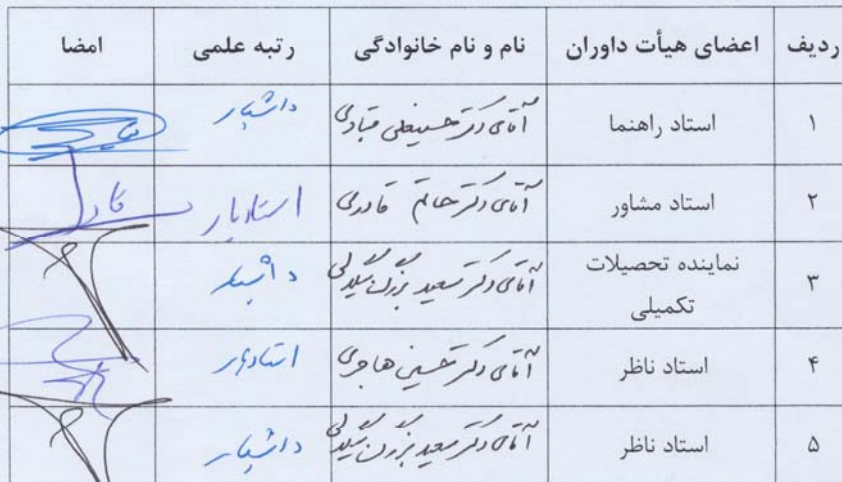 ردیف اعضای هیأت داوران نام و نام خانوادگی رتبه علمی امضا
۱ استاد راهنما آقای دکتر حسینعلی قبادی دانشیار
۲ استاد مشاور آقای دکتر حاتم قادری استادیار
۳ نماینده تحصیلات تکمیلی آقای دکتر سعید بزرگ بیگدلی دانشیار
۴ استاد ناظر آقای دکتر حسین هاجری استادیار
۵ استاد ناظر آقای دکتر سعید بزرگ بیگدلی دانشیار